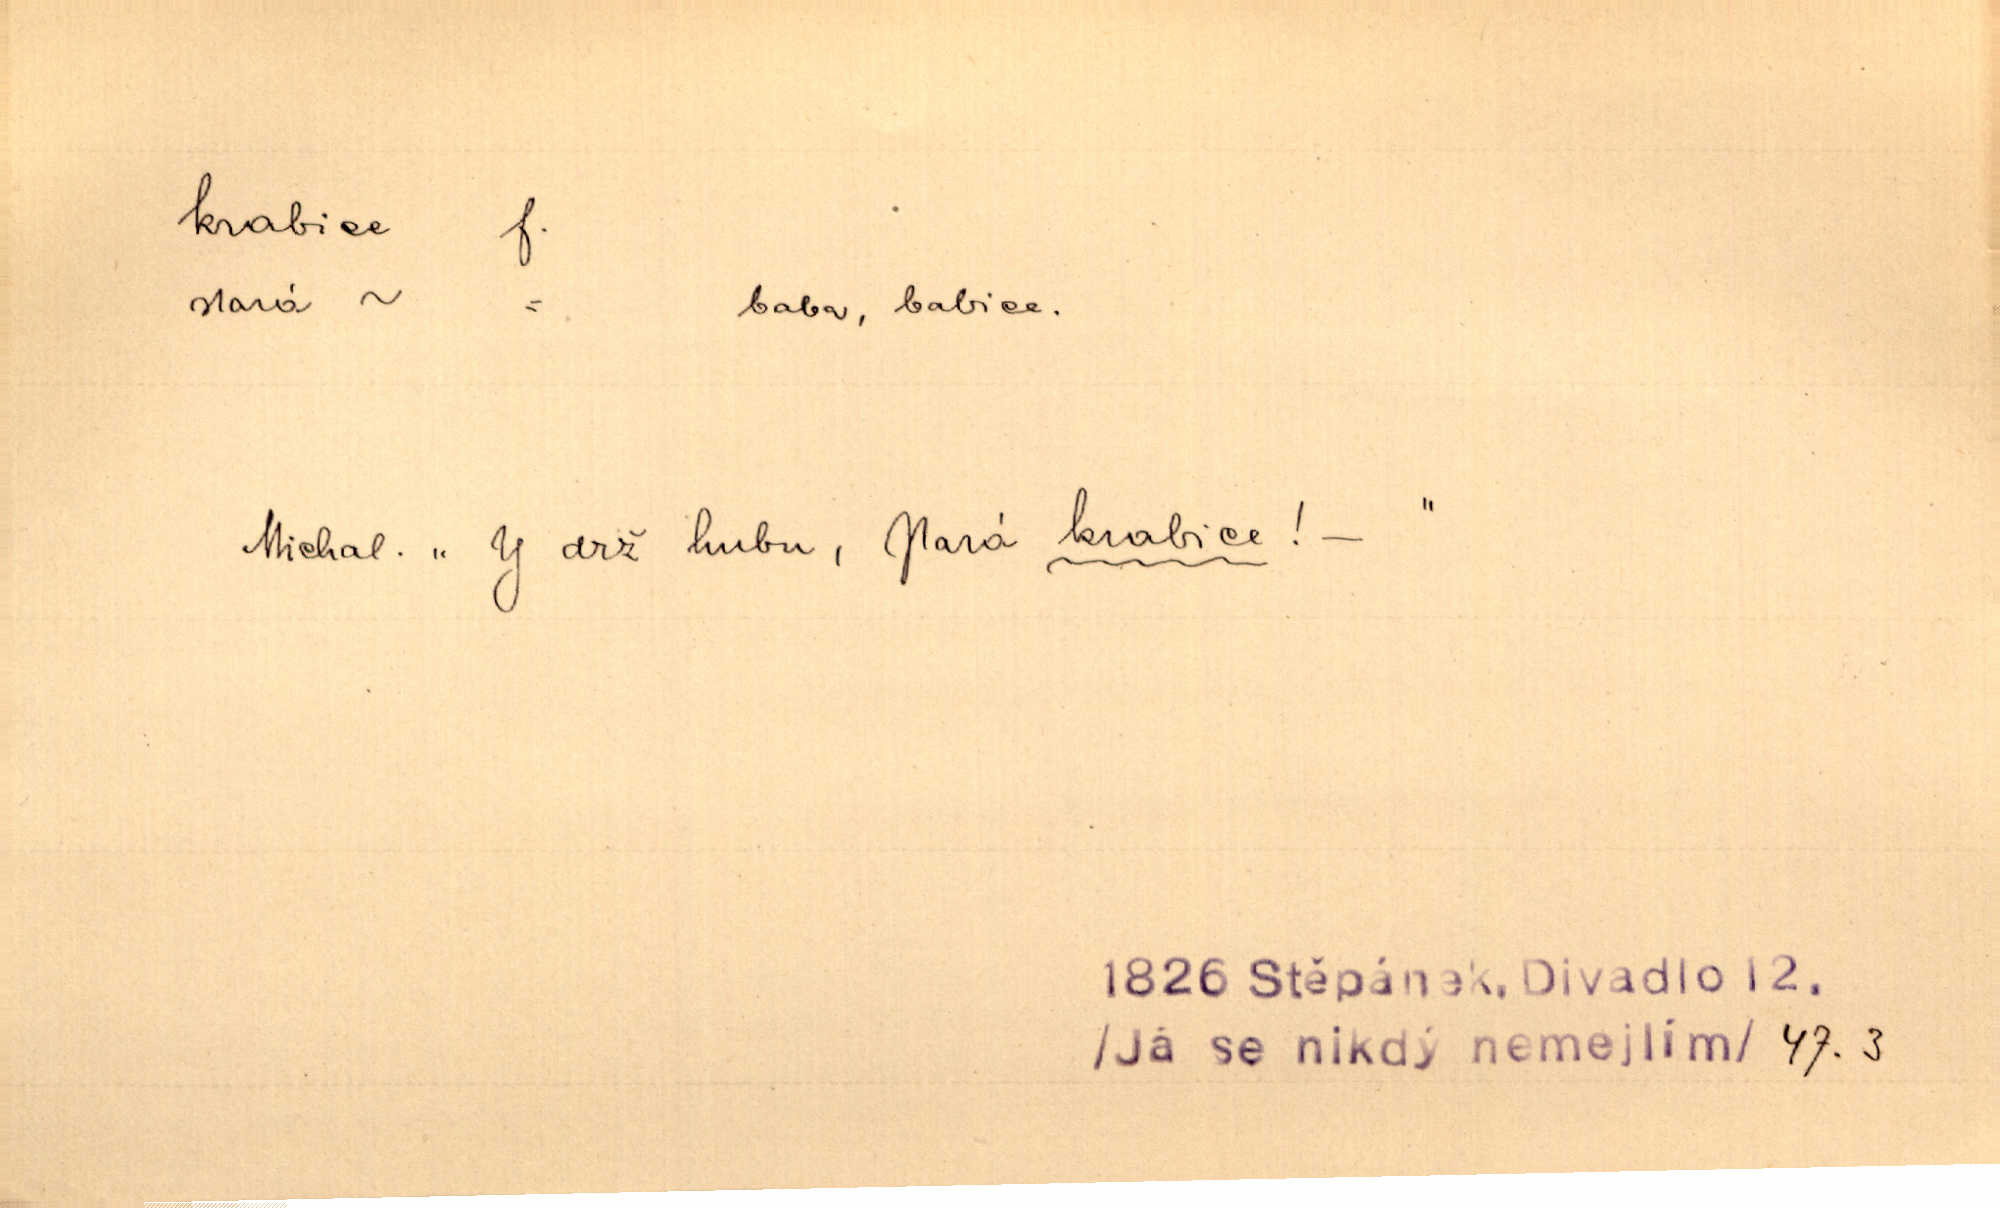 krabice f.
stará ~ = baba, babice.
Michal. „ Y drž hubu, stará krabice! — "
1826 Stěpánek, Divadlo 12.
/Já se nikdý nemejlím/ 47. 3